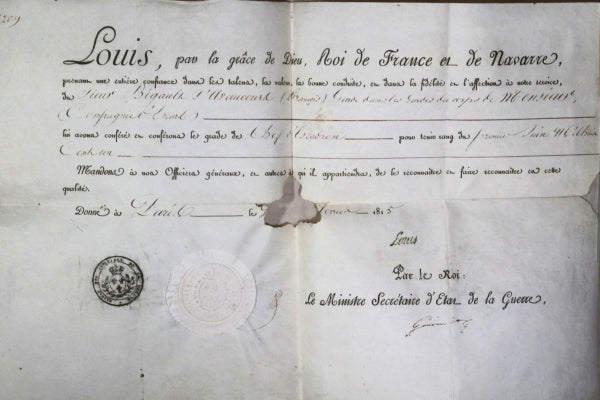 1209
Louis, par la grâce de Dieu, Roi de France et de Navarre,
prenant une entière confiance dans les talens, la valeur, la bonne conduite, et dans la fidélité et l'affection à notre service,
du Sieur Bigault D'Avaucourt (François) Garde dans les Gardes du corps de Monsieur
Compagnie
lui avons conféré et conférons le grade de Chef d'Escadron pour tenir rang du premier Juin Mil
Cent un
Mandons à nos Officiers généraux, et autres à qu'il appartiendra, de le reconnaître et faire reconnaître en cette
qualité.
Donné à Paris le 1815
Louis
Par le Roi:
Le Ministre Secrétaire d'Etat de la Guerre,